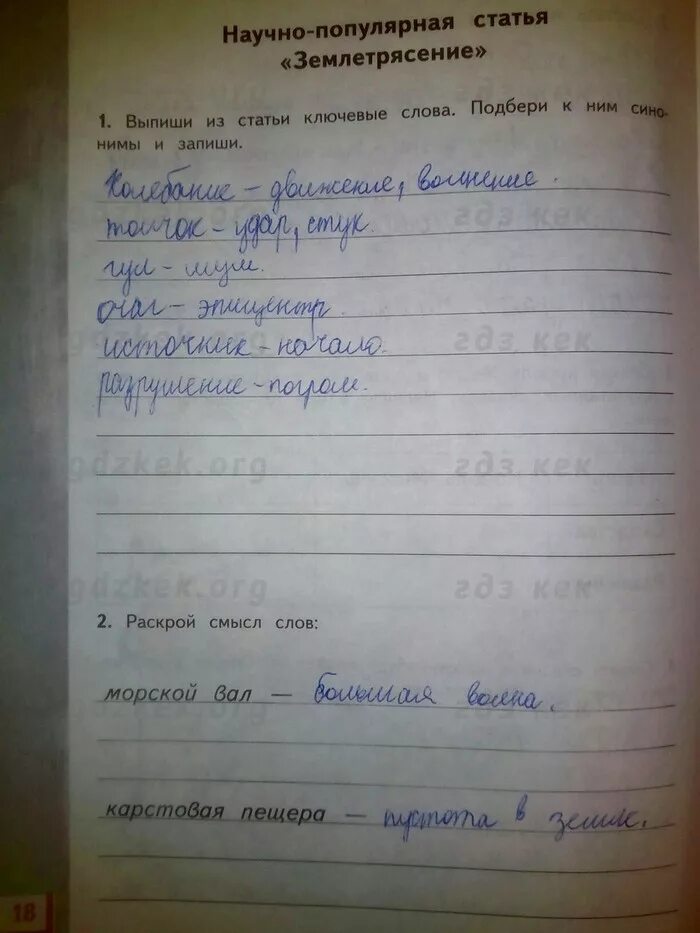 Научно-популярная статья
«Землетрясение»
1. Выпиши из статьи ключевые слова. Подбери к ним сино-
нимы и запиши.
Колебание – движение, волнение.
толчок – удар, стук.
гул – шум.
очаг – эпицентр
источник – начало.
разрушение – погром.
gdzkek.org
гдз кек
2. Раскрой смысл слов:
морской вал — большая волна.
карстовая пещера — пустота в земле.
18